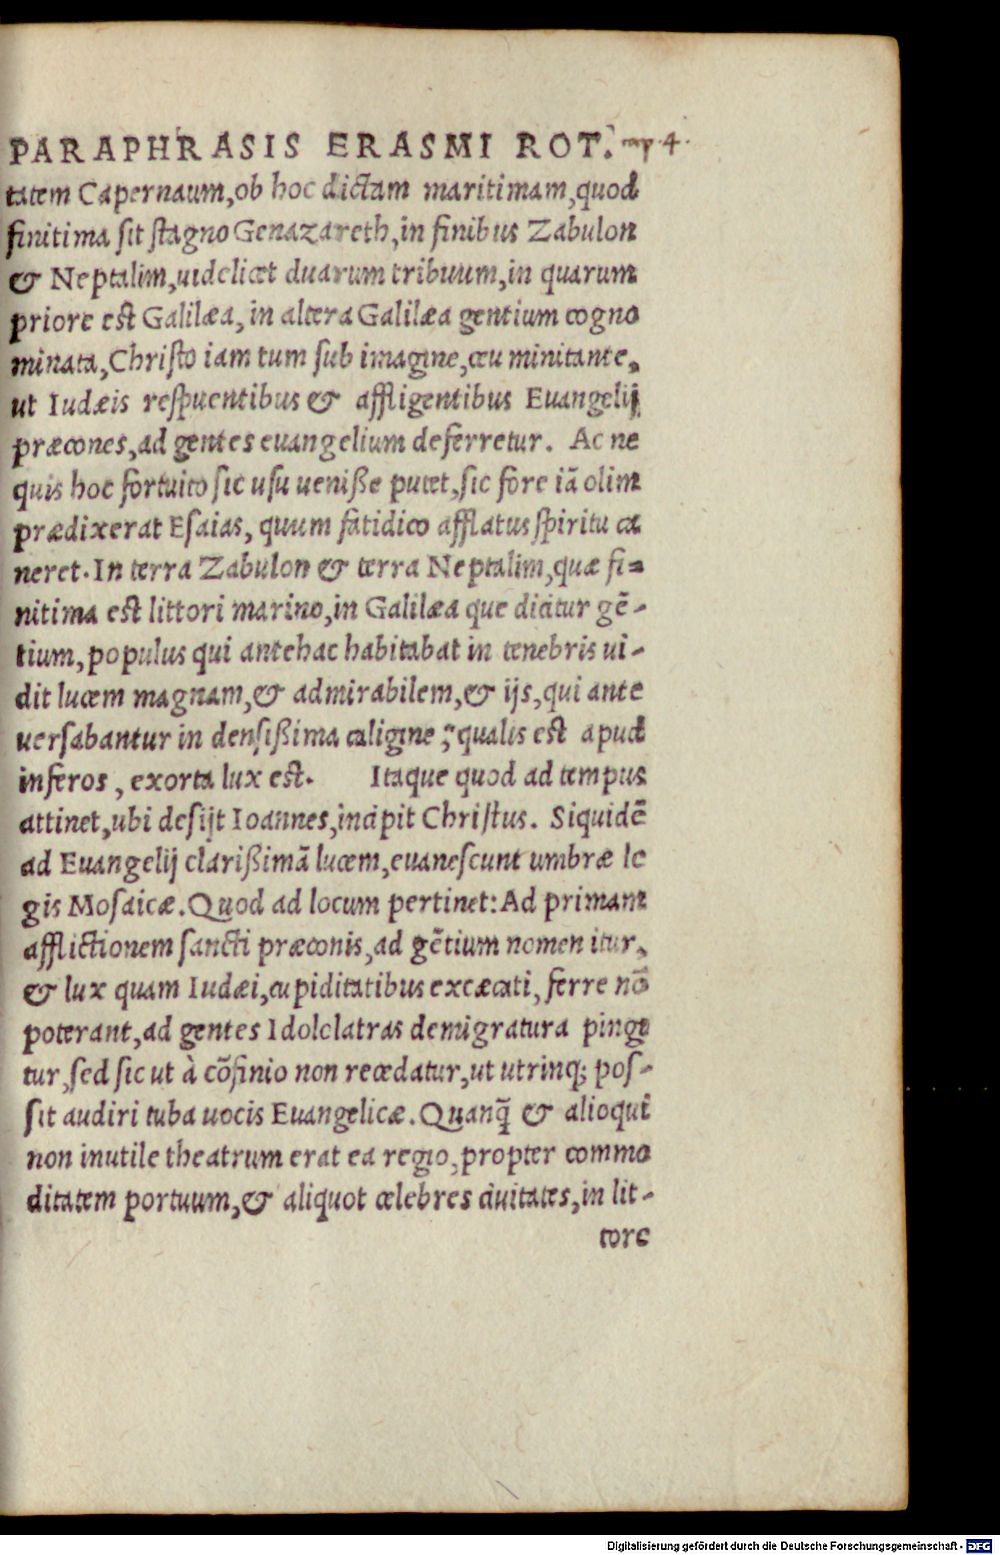 PARAPHRASIS ERASMI ROT. cap. 4.
tatem Capernaum, ob hoc dictam maritimam, quod
finitima sit stagno Genazareth, in finibus Zabulon
& Neptalim, uidelicet duarum tribuum, in quarum
priore est Galilæa, in altera Galilæa gentium cogno
minata, Christo iam tum sub imagine, ceu minitante,
ut Iudæis respuentibus & affligentibus Euangelij
præcones, ad gentes euangelium deferretur. Ac ne
quis hoc fortuito sic usu ueniße putet, sic fore iā olim
prædixerat Esaias, quum fatidico afflatus spiritu ca
neret. In terra Zabulon & terra Neptalim, quæ fi-
nitima est littori marino, in Galilæa que dicitur gē-
tium, populus qui antehac habitabat in tenebris ui-
dit lucem magnam, & admirabilem, & ijs, qui ante
uersabantur in densißima caligine, qualis est apud
inferos, exorta lux est. Itaque quod ad tempus
attinet, ubi desijt Ioannes, incipit Christus. Siquidē
ad Euangelij clarißimā lucem, euanescunt umbræ le
gis Mosaicæ. Quod ad locum pertinet: Ad primam
afflictionem sancti præconis, ad gētium nomen itur,
& lux quam Iudæi, cupiditatibus excæcati, ferre nō
poterant, ad gentes Idolclatras demigratura pinge
tur, sed sic ut à cōfinio non recedatur, ut utrinq; pos-
sit audiri tuba uocis Euangelicæ. Quanq̄ & alioqui
non inutile theatrum erat ea regio, propter commo
ditatem portuum, & aliquot celebres ciuitates, in lit-
tore
Digitalisierung gefördert durch die Deutsche Forschungsgemeinschaft - DFG